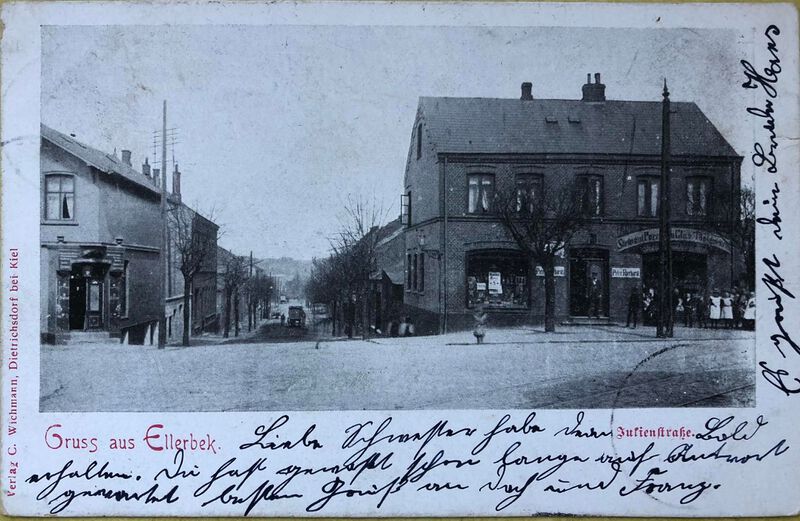 Verlag C. Wichmann, Dietrichsdorf bei Kiel
Gruss aus Ellerbek.
Julienstraße.
Liebe Schwester habe dein Bald
erhalten. Du hast gewiss schon lange auf Antwort
gewartet besten Gruß an dich und Franz.
Es grüßt dein Bruder Hans